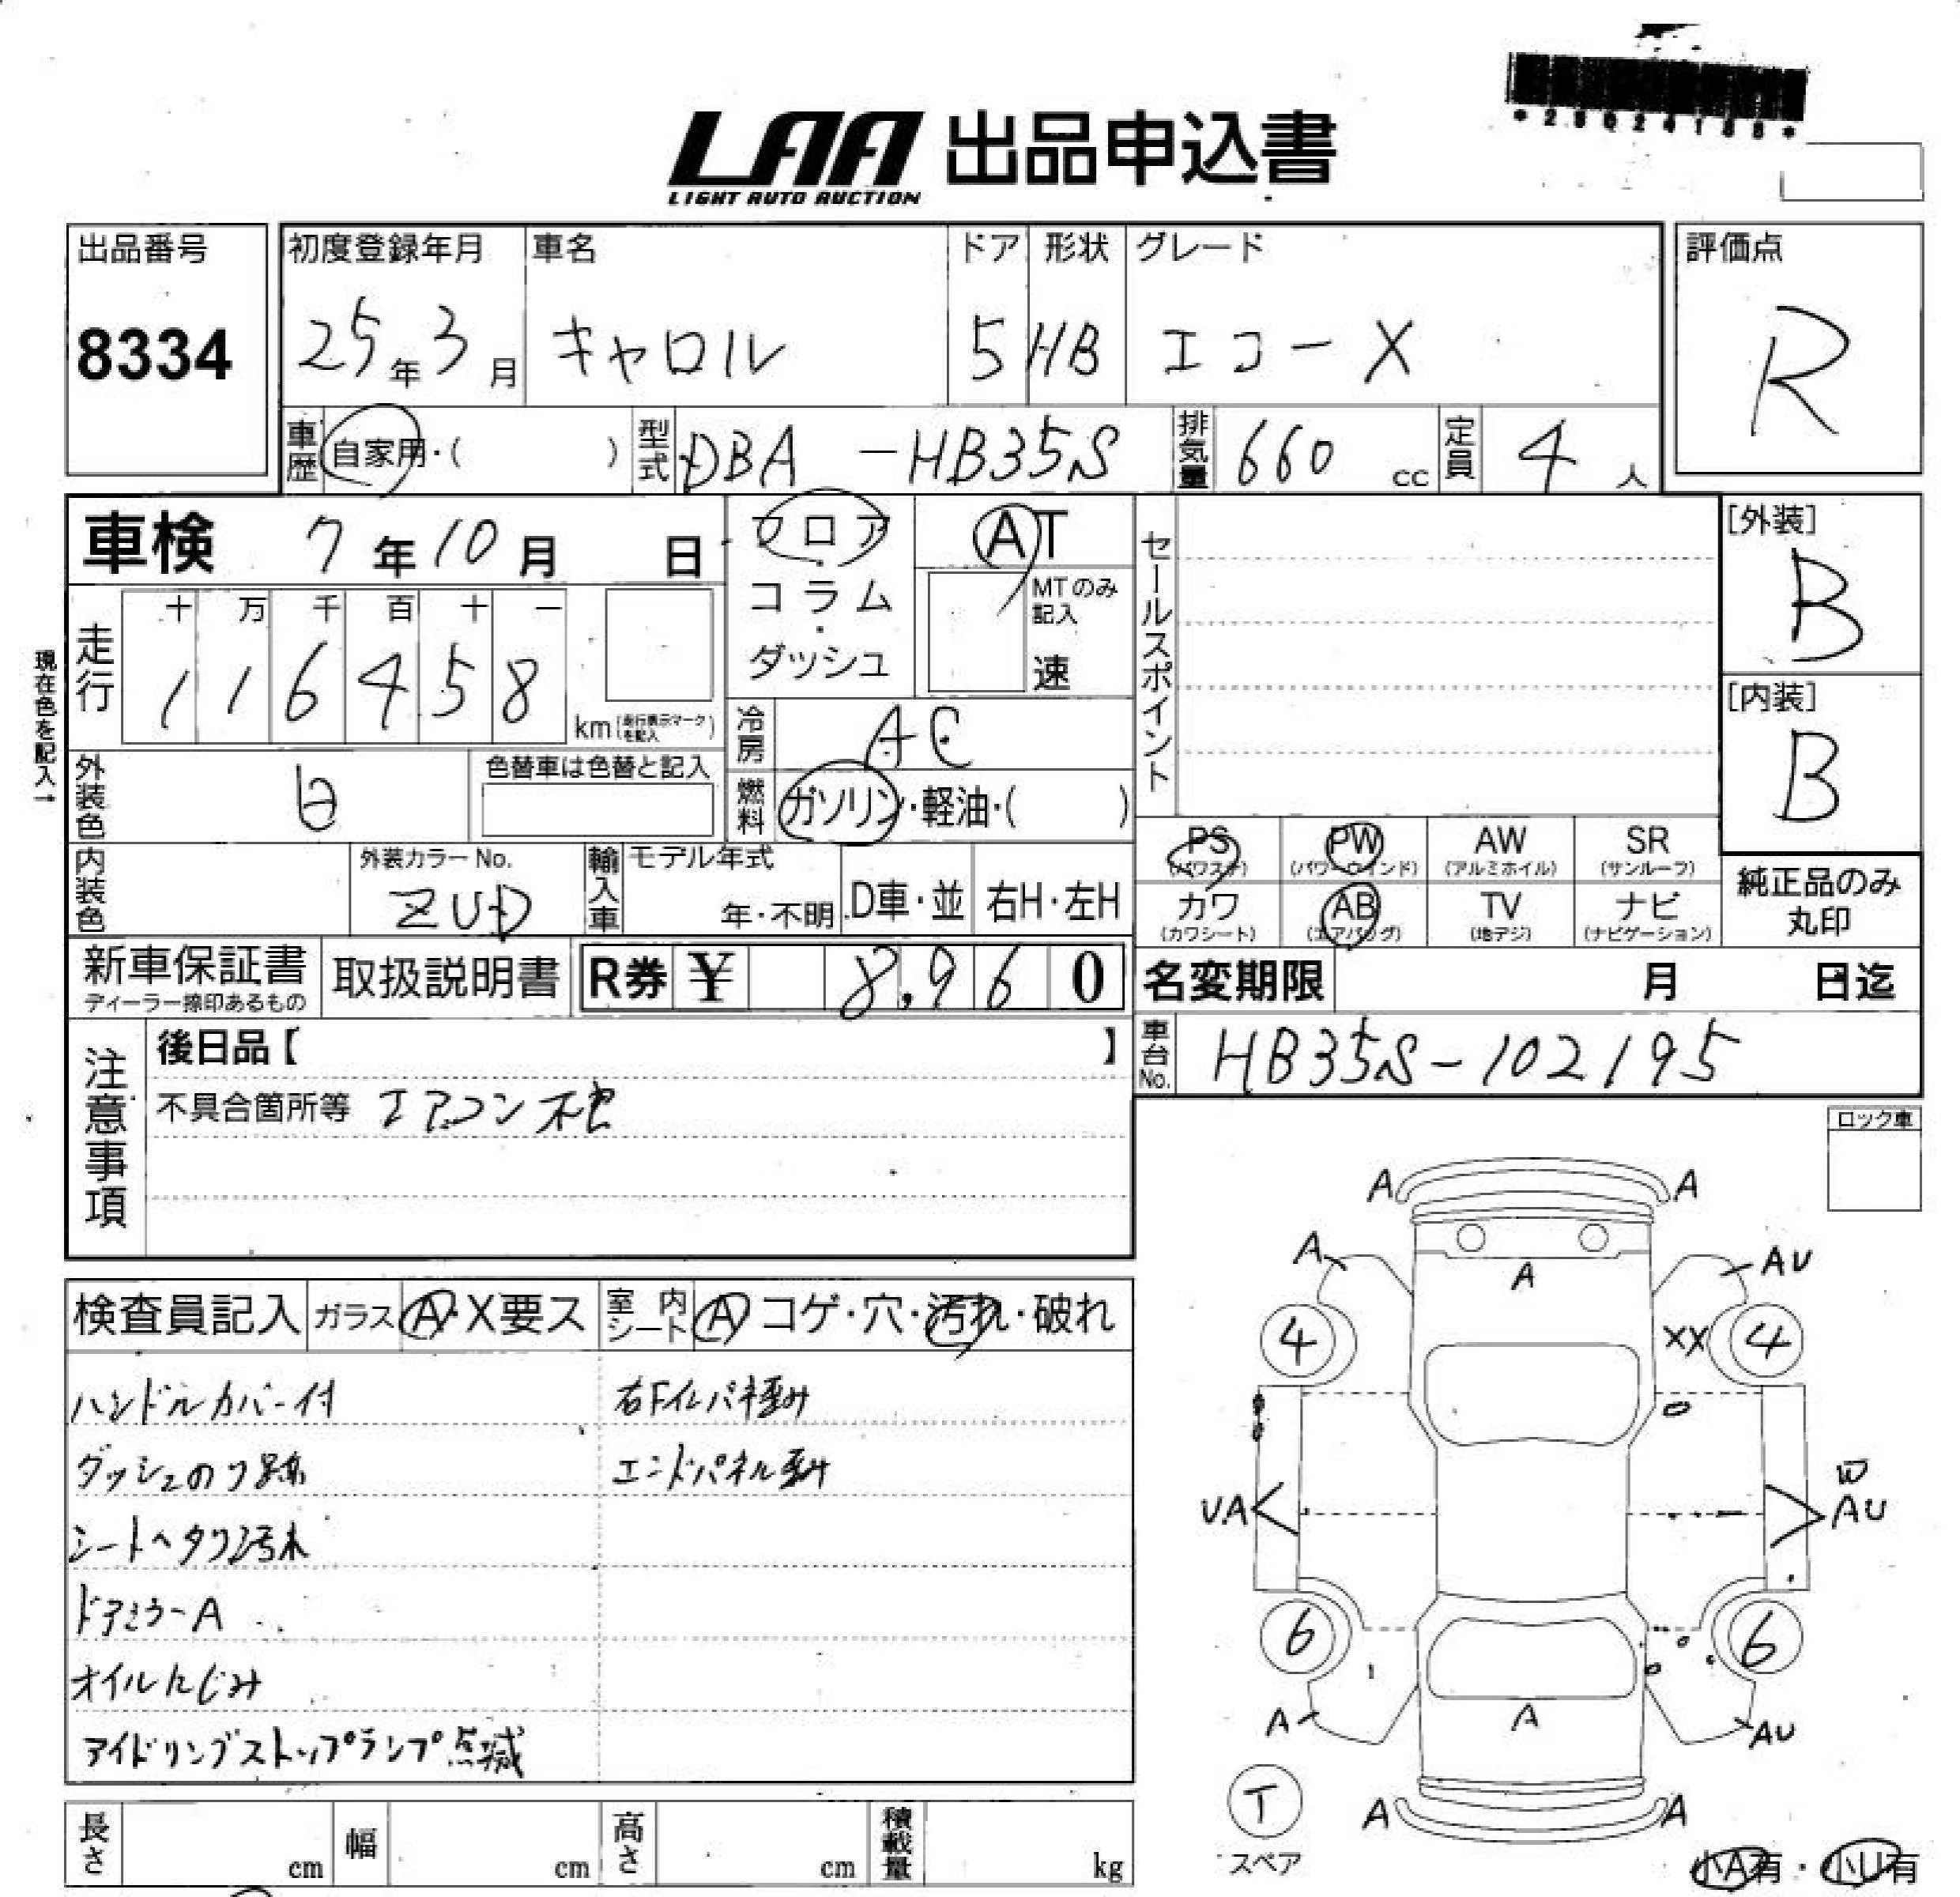 *23024188*
LAA 出品申込書
LIGHT AUTO AUCTION
出品番号 初度登録年月 車名 ドア 形状 グレード 評価点
8334 25年3月 キャロル 5 HB エコーX R
車歴 自家用・( ) 型式 DBA -HB35S 排気量 660 cc 定員 4 人
車検 7年10月 日 フロア・コラム・ダッシュ AT
MTのみ記入 速
セールスポイント
[外装] B
現在色を記入→
走行 十 万 千 百 十 一
1 1 6 4 5 8 km (走行表示マークを記入)
冷房 AC
[内装] B
外装色 白 色替車は色替と記入
燃料 ガソリン・軽油・( )
内装色 外装カラーNo. ZUD
輸入車 モデル年式 年・不明 D車・並 右H・左H
PS (パワステ) PW (パワーウインド) AW (アルミホイル) SR (サンルーフ)
カワ (カワシート) AB (エアバッグ) TV (地デジ) ナビ (ナビゲーション)
純正品のみ丸印
新車保証書 ディーラー捺印あるもの 取扱説明書 R券 ¥ 8,960
名変期限 月 日迄
車台No. HB35S-102195
注意事項
後日品【 】
不具合箇所等 エアコン
ロック車
検査員記入 ガラス A・X要ス 室内シート A コゲ・穴・汚れ・破れ
ハンドルカバー付 右Fインパネ歪み
ダッシュのリ跡 エンドパネル歪み
シートヘタリ汚れ
ドアミラーA
オイルにじみ
アイドリングストップランプ点滅
A A
A A AU
4 XX 4
VA W
AU
6 6
A A AU
T
スペア
A A
小A有・小U有
長さ cm 幅 cm 高さ cm 積載量 kg